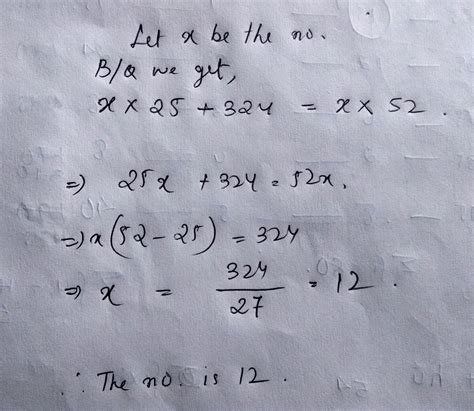 Let x be the no.
B/Q we get,
x × 25 + 324 = x × 52.
⇒) 25x + 324 = 52x.
⇒) x(52 - 25) = 324
⇒) x = 324/27 = 12.
∴ The no. is 12.